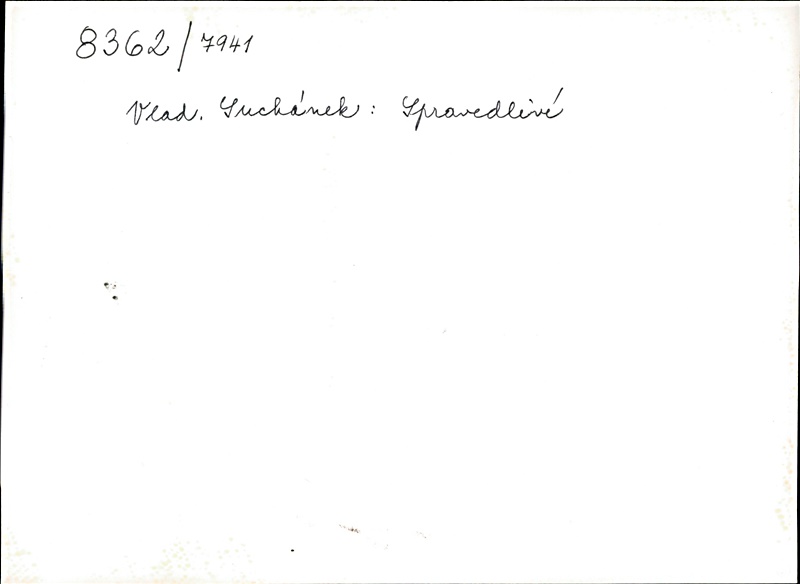 8362/7941
Vlad. Suchánek : Spravedlivé